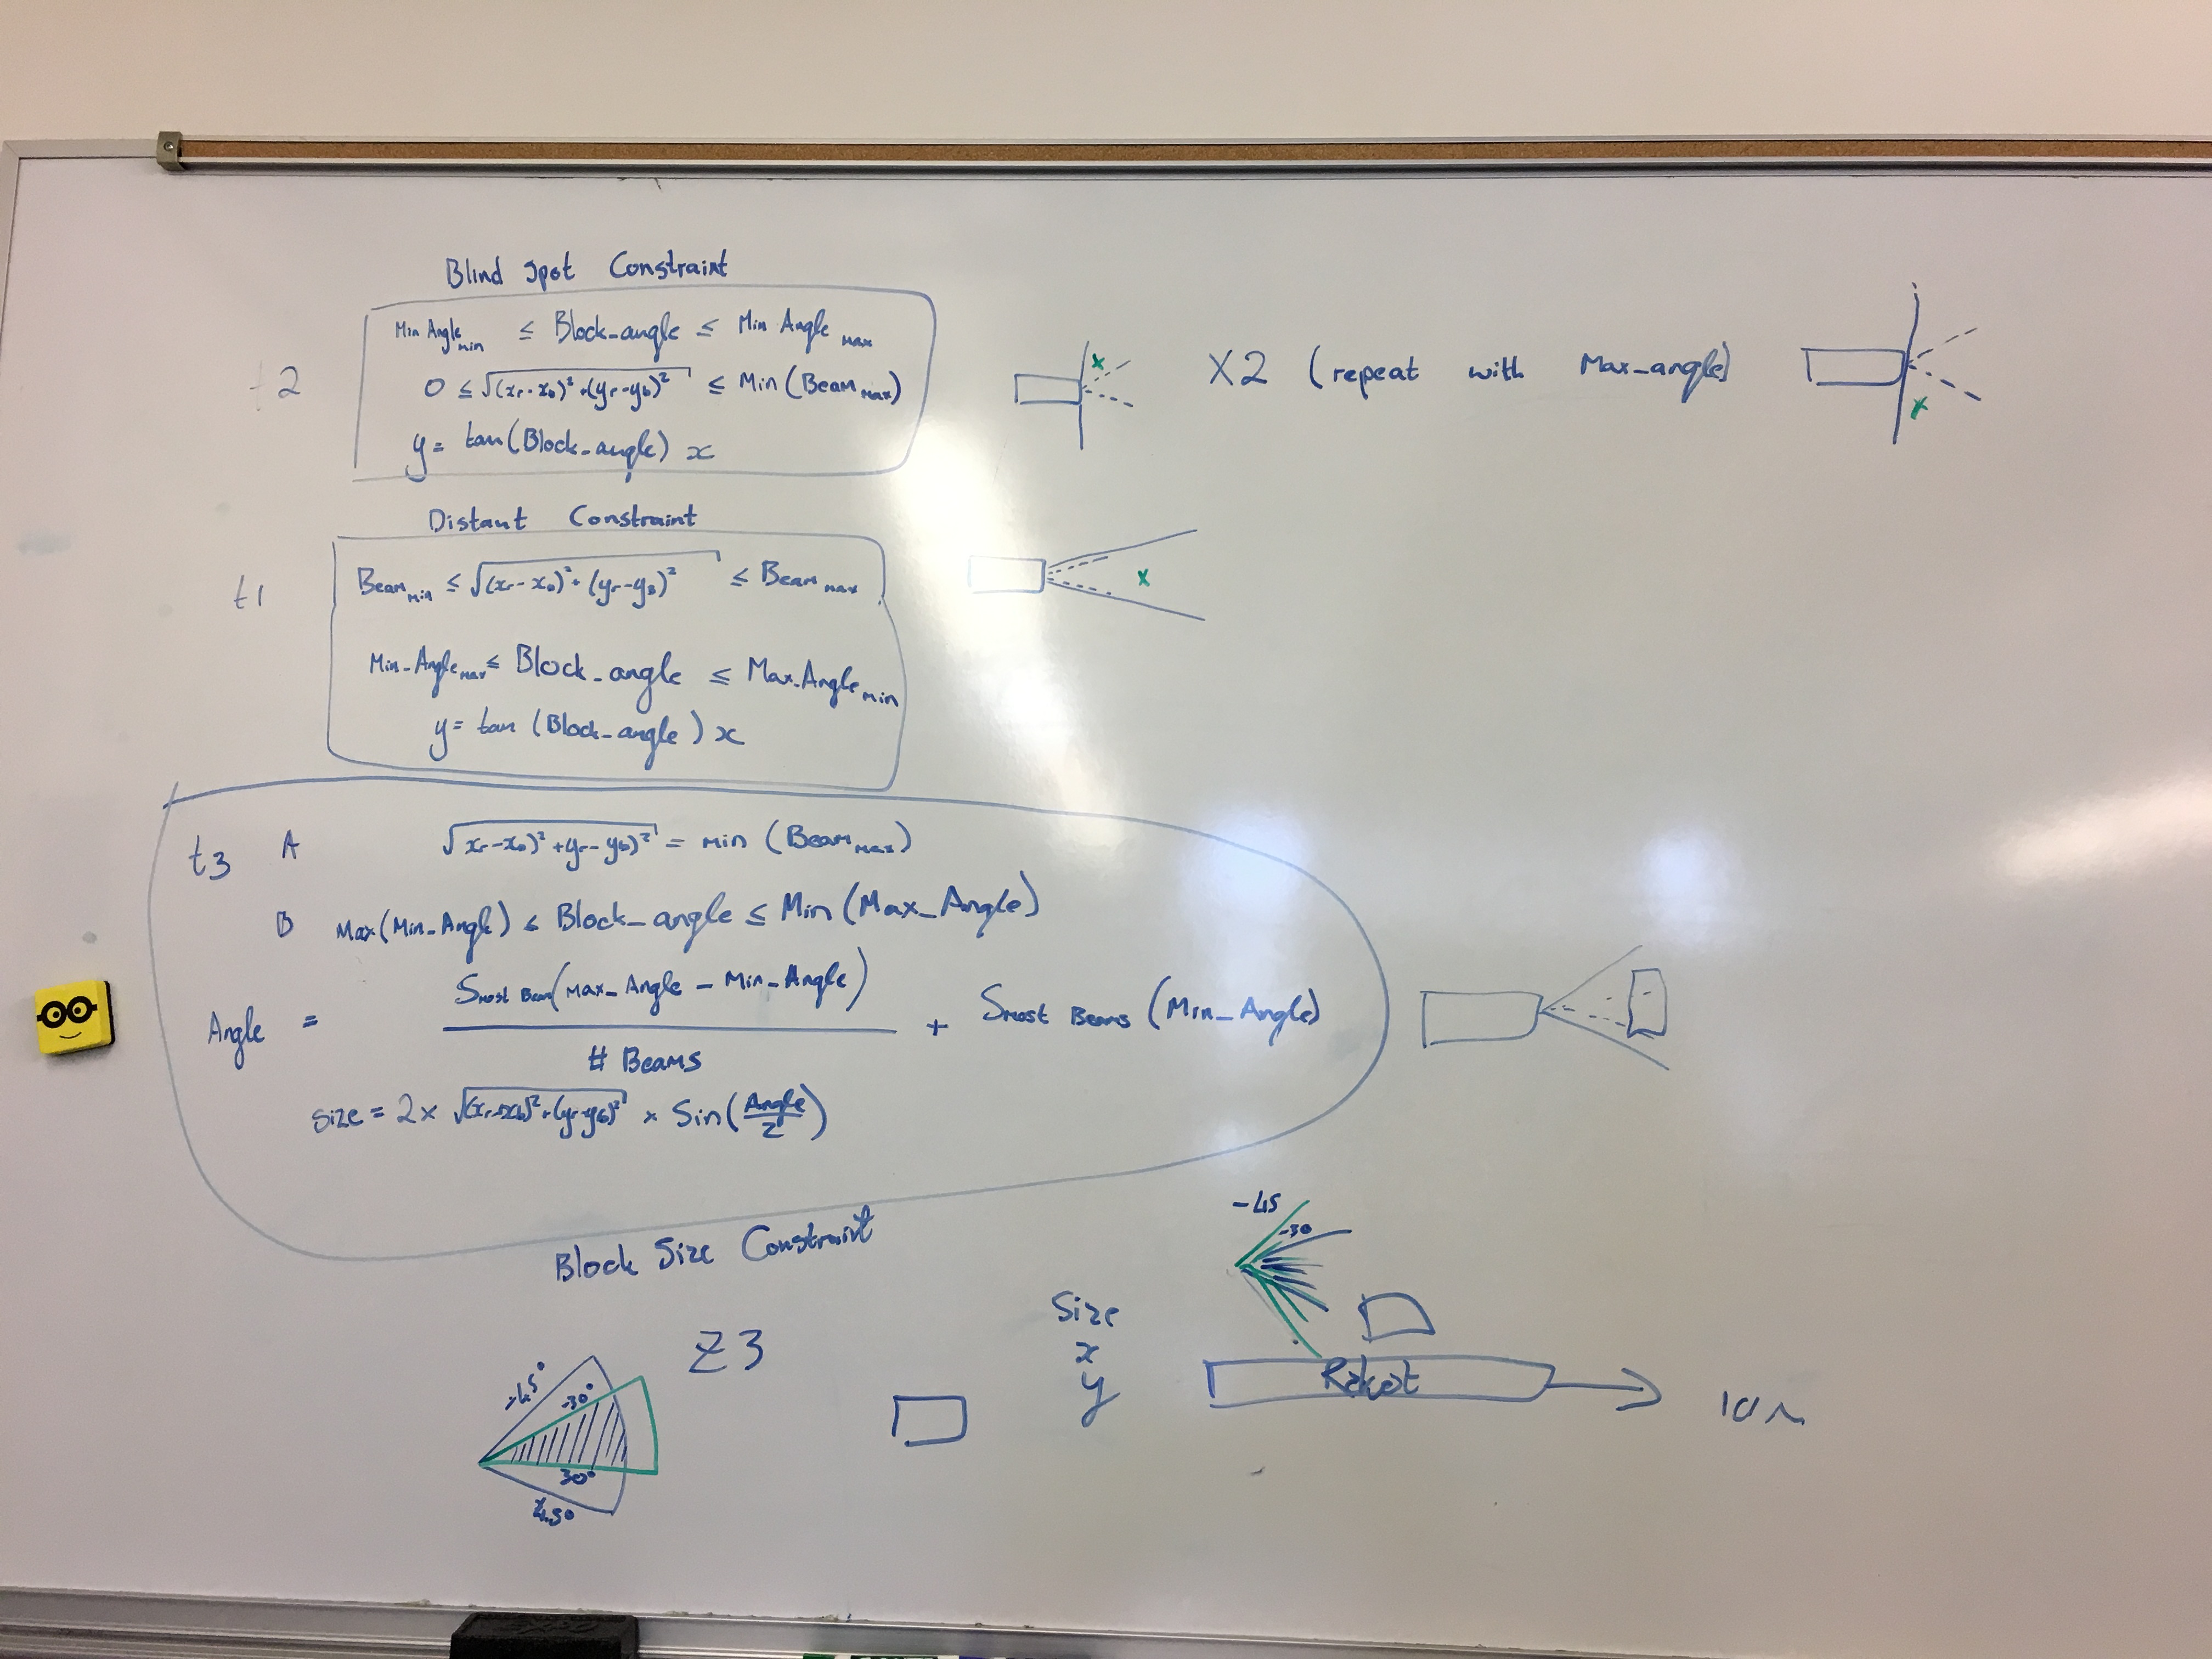 Blind Spot Constraint
t2
Min Angle min ≤ Block_angle ≤ Min Angle max
0 ≤ √(xr-xb)²+(yr-yb)² ≤ Min (Beam max)
y = tan(Block_angle) x
x
X2 (repeat with Max_angle)
x
Distant Constraint
t1
Beam min ≤ √(xr-xb)²+(yr-yb)² ≤ Beam max
x
Min_Angle max ≤ Block_angle ≤ Max_Angle min
y = tan (Block_angle) x
t3 A √xr-xb)²+yr-yb)² = min (Beam max)
B Max(Min_Angle) ≤ Block_angle ≤ Min(Max_Angle)
Angle = Smost Beam(Max_Angle - Min_Angle) / # Beams + Smost Beams (Min_Angle)
Size = 2 × √(xr-xb)²+(yr-yb)² × Sin(Angle/2)
Block Size Constraint
-45
-30
Z3
Size
x
y
Robot
-45°
-30°
30°
45°